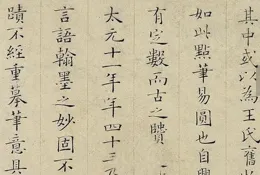 其中或以為王氏舊
如此點筆易圓也自興
有定數而古之
太元十一年年四十三乃
言語翰墨之妙固不
蹟不經重摹筆意具